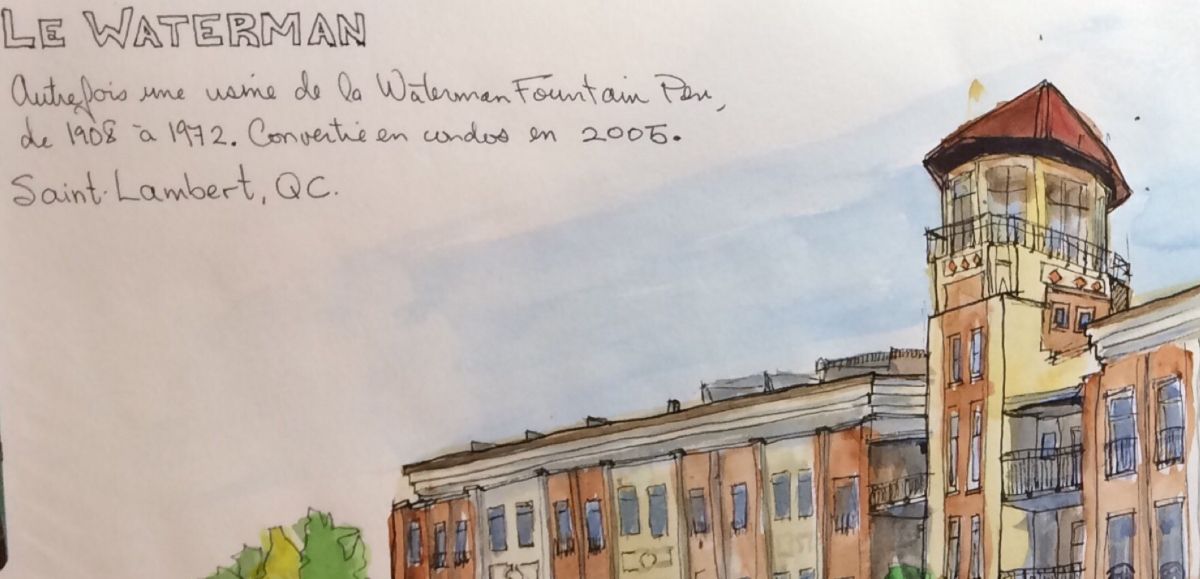 LE WATERMAN
Autrefois une usine de la Waterman Fountain Pen,
de 1908 à 1972. Convertie en condos en 2005.
Saint-Lambert, QC.